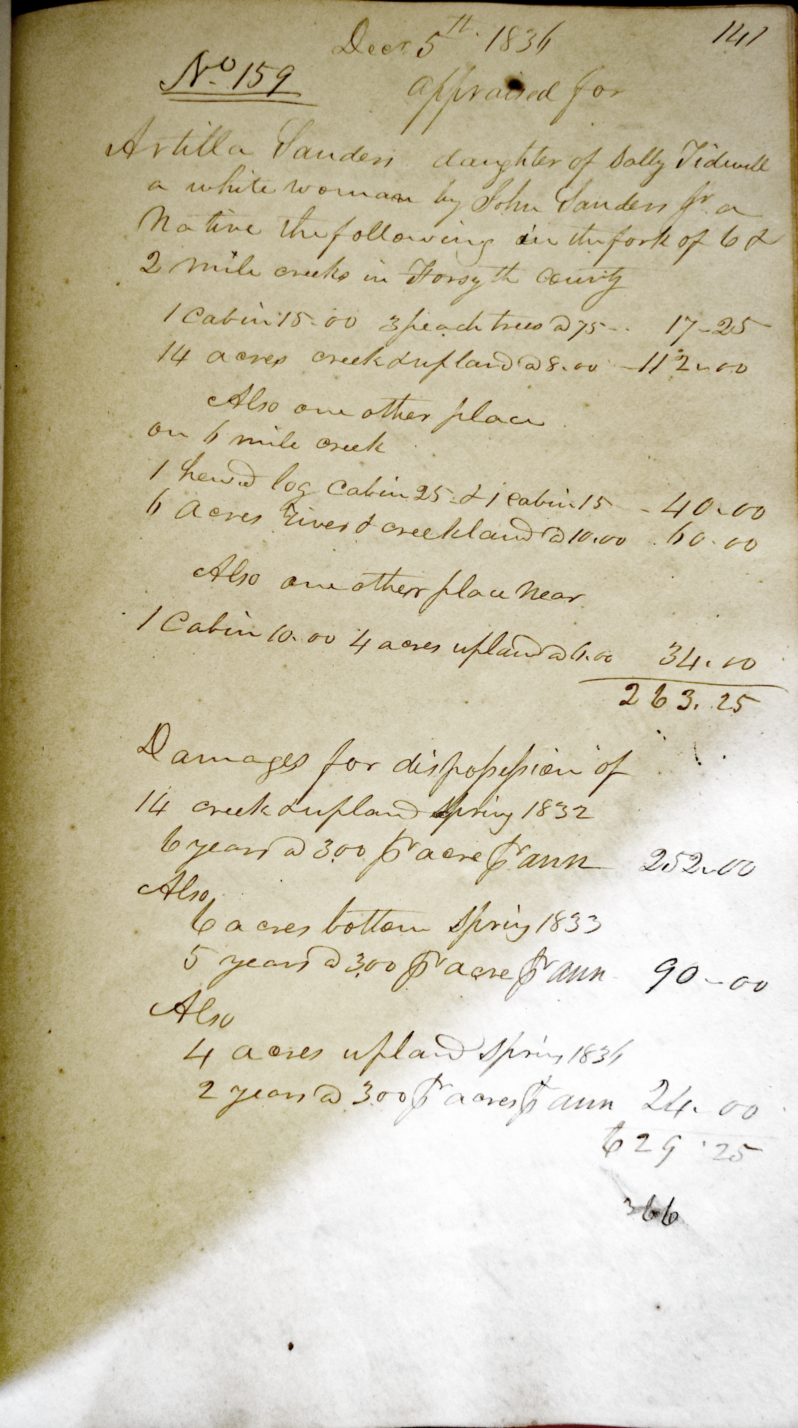 Decr 5th 1836 141
No 159
appraised for
Artilla Sanders daughter of Sally Tidwell
a white woman by John Sanders Jr a
Native the following in the fork of 6 &
2 mile creeks in Forsyth County
1 Cabin 15.00 3 peach trees @ 75 - 17-25
14 acres creek & upland @ 8.00 - 112.00
Also one other place
on 6 mile creek
1 hewd log Cabin 25 & 1 cabin 15 - 40.00
6 acres River & creek land @ 10.00 60.00
Also one otherr place Near
1 Cabin 10.00 4 acres upland @ 6.00 34.00
263.25
Damages for dispossession of
14 creek & upland Spring 1832
6 years @ 3.00 pr acre pr ann 252.00
Also
6 acres bottom Spring 1833
5 years @ 3.00 pr acre pr ann 90-00
Also
4 acres upland Spring 1836
2 years @ 3.00 pr acres pr ann 24.00
629.25
366